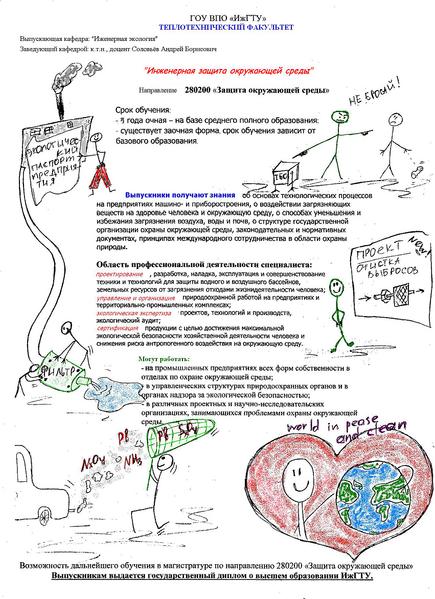 ГОУ ВПО «ИжГТУ»
ТЕПЛОТЕХНИЧЕСКИЙ ФАКУЛЬТЕТ
Выпускающая кафедра: "Инженерная экология"
Заведующий кафедрой: к.т.н., доцент Соловьёв Андрей Борисович
"Инженерная защита окружающей среды"
Направление 280200 «Защита окружающей среды»
НЕ БРОСАЙ!
ЭКОЛОГИЧЕС
КИЙ
ПАСПОРТ
ПРЕДПРИЯ
ТИЯ
Срок обучения:
года очная – на базе среднего полного образования;
- существует заочная форма, срок обучения зависит от
базового образования.
ТБО
Выпускники получают знания об основах технологических процессов
на предприятиях машино- и приборостроения, о воздействии загрязняющих
веществ на здоровье человека и окружающую среду, о способах уменьшения и
избежания загрязнения воздуха, воды и почв, о структуре государственной
организации охраны окружающей среды, законодательных и нормативных
документах, принципах международного сотрудничества в области охраны
природы.
ПРОЕКТ
ОЧИСТКА
ВЫБРОСОВ
Область профессиональной деятельности специалиста:
проектирование, разработка, наладка, эксплуатация и совершенствование
техники и технологий для защиты водного и воздушного бассейнов,
земельных ресурсов от загрязнения отходами жизнедеятельности человека;
управление и организация природоохранной работой на предприятиях и
территориально-промышленных комплексах;
экологическая экспертиза проектов, технологий и производств,
экологический аудит;
сертификация продукции с целью достижения максимальной
экологической безопасности хозяйственной деятельности человека и
снижения риска антропогенного воздействия на окружающую среду.
ФИЛЬТР
Могут работать:
- на промышленных предприятиях всех форм собственности в
отделах по охране окружающей среды;
- в управленческих структурах природоохранных органов и в
органах надзора за экологической безопасностью;
- в различных проектных и научно-исследовательских
организациях, занимающихся проблемами охраны окружающей
среды.
Pb
Pb
NH3
world in pease
and clean
Возможность дальнейшего обучения в магистратуре по направлению 280200 «Защита окружающей среды»
Выпускникам выдается государственный диплом о высшем образовании ИжГТУ.